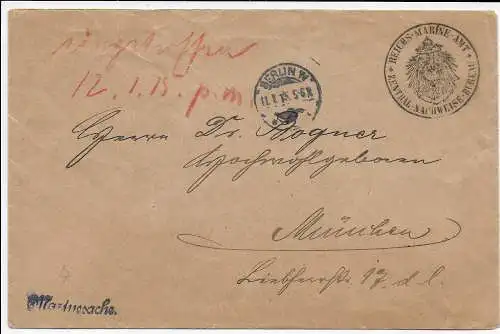 eingetroffen
12.1.15. p.m.
BERLIN W.
11.1.15. 5-6 N.
REICHS-MARINE-AMT
ZENTRAL-NACHWEISE-BUREAU
Herrn Dr. Bogner
Hochwohlgeboren
München
Liebherrstr. 17. d. l.
Marinesache.